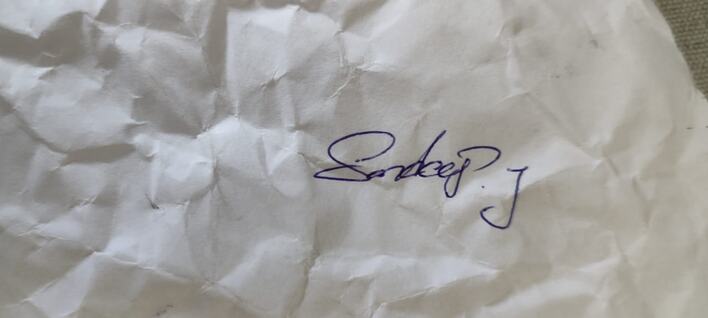 Sandeep. J